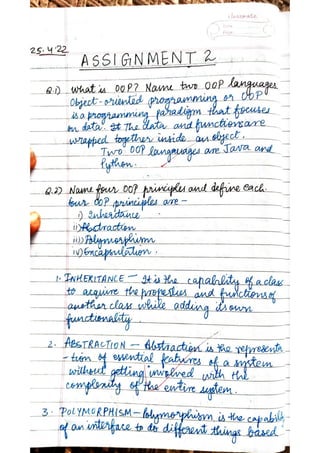 25.4.22
ASSIGNMENT 2
Q.1) What is OOP? Name two OOP languages
Object-oriented programming or OOP
is a programming paradigm that focuses
on data. It The data and functions are
wrapped together inside an object.
Two OOP languages are Java and
Python.
Q.2) Name four OOP principles and define each.
Four OOP principles are -
i) Inheritance
ii) Abstraction
iii) Polymorphism
iv) Encapsulation.
1. INHERITANCE - It is the capability of a class
to acquire the properties and functions of
another class while adding its own
functionality.
2. ABSTRACTION - Abstraction is the representa
-tion of essential features of a system
without getting involved with the
complexity of the entire system.
3. POLYMORPHISM - Polymorphism is the capability
of an interface to do different things based